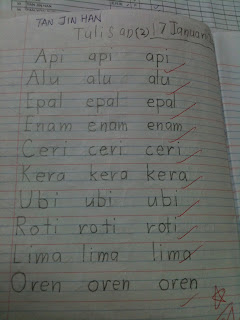 TAN JIN HAN
Tulisan (2) 17 Januari
Api api api
Alu alu alu
Epal epal epal
Enam enam enam
Ceri ceri ceri
Kera kera kera
Ubi ubi ubi
Roti roti roti
Lima lima lima
Oren oren oren